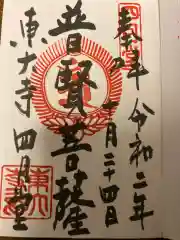 奉拝
令和二年
月二十四日
普賢菩薩
東大寺 四月堂